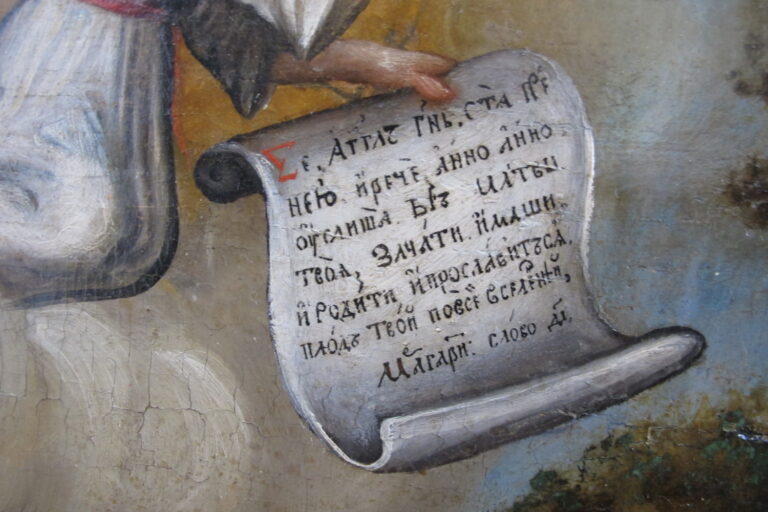 Се, АГГЛЪ ГНЬ, СТА ПРЕ
НЕЮ И РЕЧЕ АННО АННО
ОУСЛИША БГЪ МЛТВЫ
ТВОѦ, ЗАЧАТИ ИМАШИ
И РОДИТИ И ПРОСЛАВИТЬСѦ
ПЛОДЪ ТВОЙ ПОВСЕ ВСЕЛЕННЕЙ,
СЛОВО